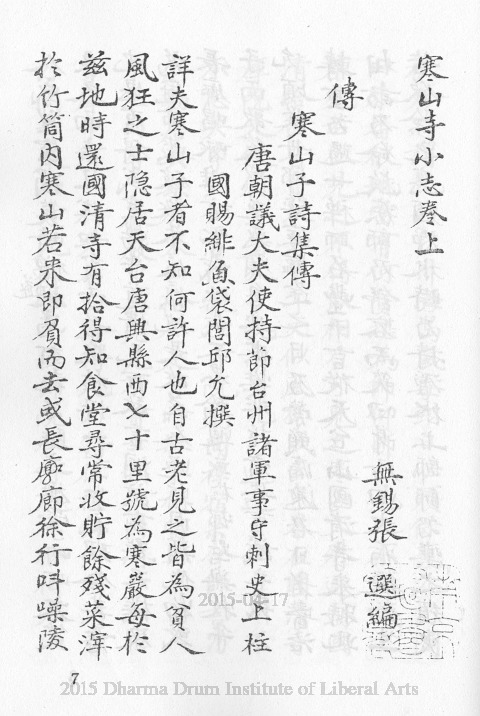 寒山寺小志卷上
無錫張 選編
傳
寒山子詩集傳
唐朝議大夫使持節台州諸軍事守刺史上柱
國賜緋魚袋閭邱允撰
詳夫寒山子者不知何許人也自古老見之皆為貧人
風狂之士隐居天台唐興縣西七十里號為寒巖每於
茲地時還國清寺有拾得知食堂尋常收貯餘殘菜滓
於竹筒內寒山若来即負而去或長廊徐行叫噪陵
2015-04-17
7
2015 Dharma Drum Institute of Liberal Arts